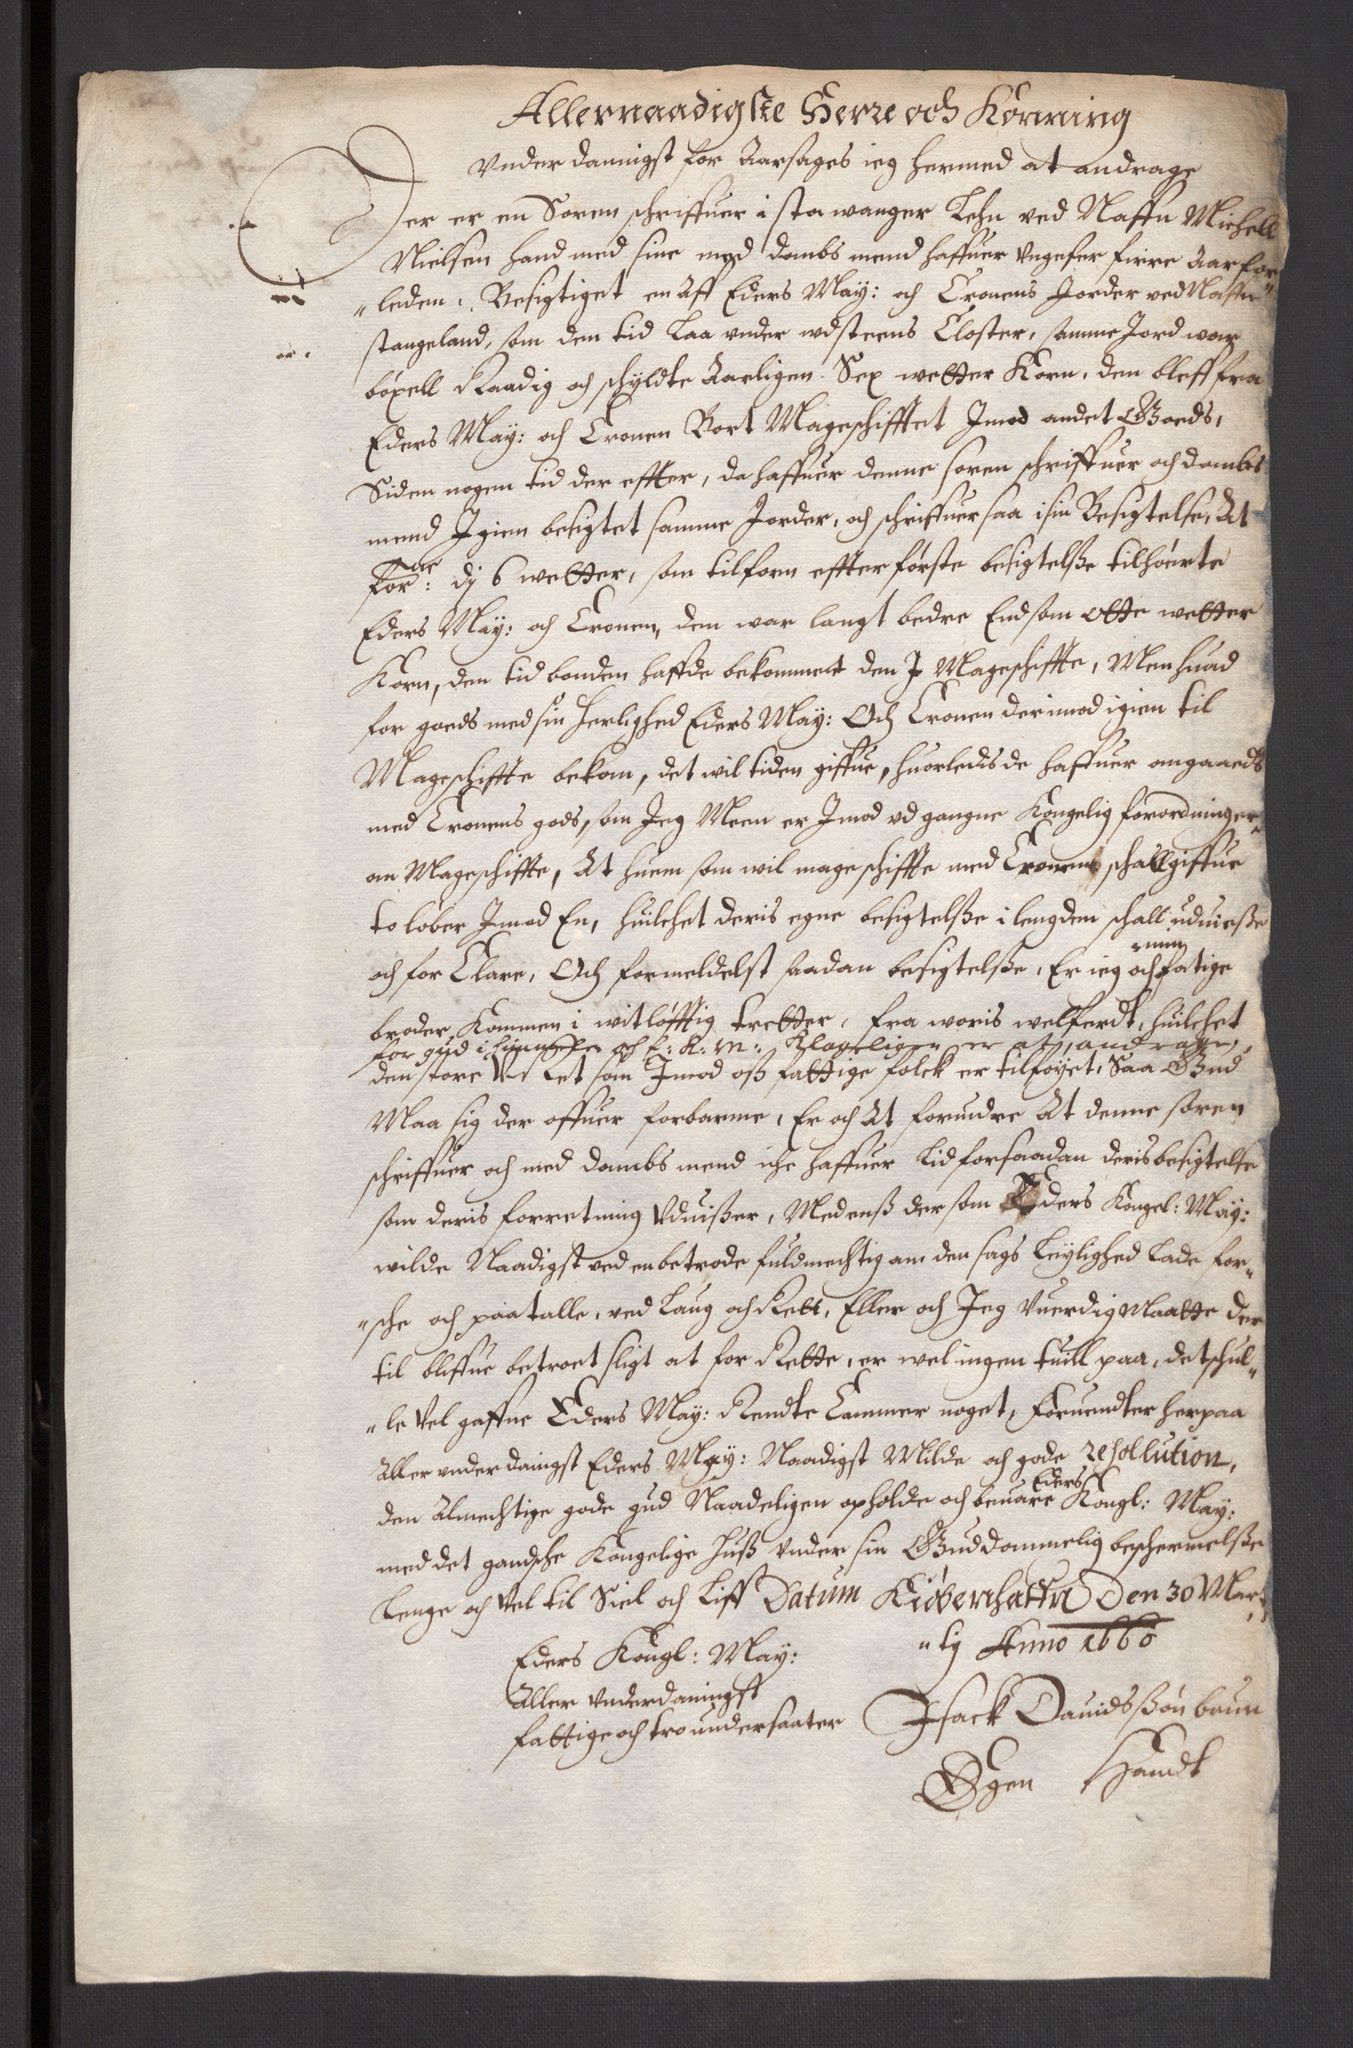 Allernaadigste Herre och Konning
Vnder dannigst for Aarsages ieg hermed at andrage
Der er en Soren schriffuer i stawanger Lehn ved Naffn Michell
Nielsen hand med sine med dombs mend haffuer vngefer firre Aar for
"leden, Besigtiget en Aff Eders May: och Cronens Jorder ved Naffn
stangeland, som den tid Laa vnder vdsteens Closter, samme Jord war
böxell Raadig och schyldte Aarligen Sex wetter Korn, den bleff fra
Eders May: och Cronen Bort Mageschifftet Jmod andet Goeds,
Siden nogen tid der effter, da haffuer denne soren schriffuer och dombs
mend Jgien besigtet samme Jorder, och schriffuer saa i sin Besigtelse, At
for:ne dj 6 wetter, som tilforn effter første besigtelsse tilhørte
Eders May: och Cronen, den war langt bedre End som otte wetter
Korn, den tid bonden haffde bekommet den J Mageschiffte, Men huad
for goeds med sin herlighed Eders May: Och Cronen derimod igien til
Mageschiffte bekom, det wil tiden giffue, huorledis de haffuer omgaaeds
med Cronens gods, som Jeg Meen er Jmod vd gangne Kongelig forordninger
om Mageschiffte, At huem som wil mageschiffte med Cronens schall giffue
to lober Jmod En, huilchet deris egne besigtelsse i lengden schall uduiesse
och for Clare, Och formeldelst saadan besigtelsse, Er ieg och min fatige
broder Kommen i witløfftig tretter, fra woris welferdt, huilchet
for gud i himmelen och E: K: M: Klageligen er at andrage,
den store Vret som Jmod oss fattige folck er tilføyet, Saa Gud
Maa sig der offuer forbarme, Er och At forundre At denne soren
schriffuer och med dombs mend iche haffuer Lid for saadan deris besigtelse
som deris forretning Vduisser, Medenss der som Eders Kongel: May:
wilde Naadigst ved en betrode fuldmechtig om den sags Leylighed Lade for"
"sche och paatalle, ved Laug och Rett, Eller och Jeg Vuerdig Maatte der
til bliffue betroet sligt at for Rette, er wel ingen tuill paa, det schul"
"le Vel gaffne Eders May: Rendte Cammer noget, Foruendter herpaa
Aller vnder danigst Eders May: Naadigst Milde och gode resollution,
den Almechtige gode gud Naadeligen opholde och beuare Eders Kongl: May:
med det gandsche Kongelige Huss vnder sin Guddommelig beschermelsse
Lenge och Vel til Siel och Liff Datum Kiöbenhaffn Den 30 Mar"
"ty Anno 1660
Eders Kongl: May:
Aller vnderdanigst
fattige och tro undersaater
Jsack Dauidssön baun
Egen Handt